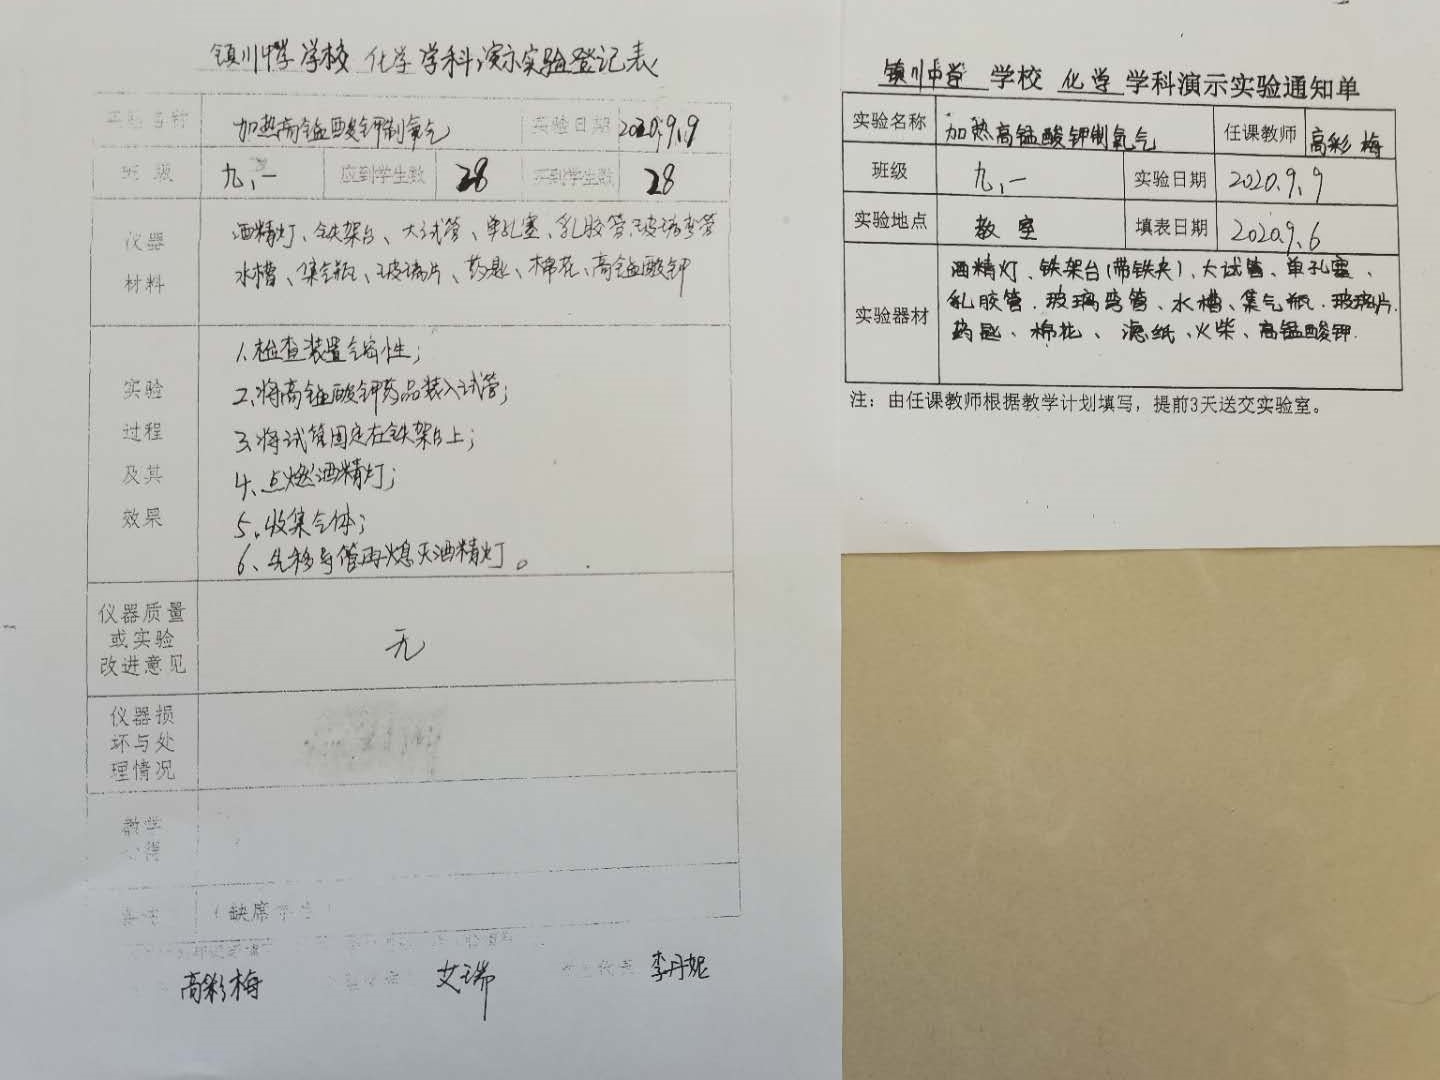 镇川中学学校 化学 学科演示实验登记表
实验名称 加热高锰酸钾制氧气 实验日期 2020.9.9
班级 九、一 应到学生数 28 实到学生数 28
仪器
材料
酒精灯、铁架台、大试管、单孔塞、乳胶管、玻璃弯管
水槽、集气瓶、玻璃片、药匙、棉花、高锰酸钾
实验
过程
及其
效果
1、检查装置气密性;
2、将高锰酸钾药品装入试管;
3、将试管固定在铁架台上;
4、点燃酒精灯;
5、收集气体;
6、先移导管再熄灭酒精灯。
仪器质量
或实验
改进意见
无
仪器损
坏与处
理情况
教学
心得
备注 (缺席学生)
高彩梅 艾瑞 李丹妮
镇川中学 学校 化学 学科演示实验通知单
实验名称 加热高锰酸钾制氧气 任课教师 高彩梅
班级 九、一 实验日期 2020.9.9
实验地点 教室 填表日期 2020.9.6
实验器材
酒精灯、铁架台(带铁夹)、大试管、单孔塞、
乳胶管.玻璃弯管、水槽、集气瓶.玻璃片.
药匙、棉花、滤纸、火柴、高锰酸钾.
注：由任课教师根据教学计划填写，提前3天送交实验室。